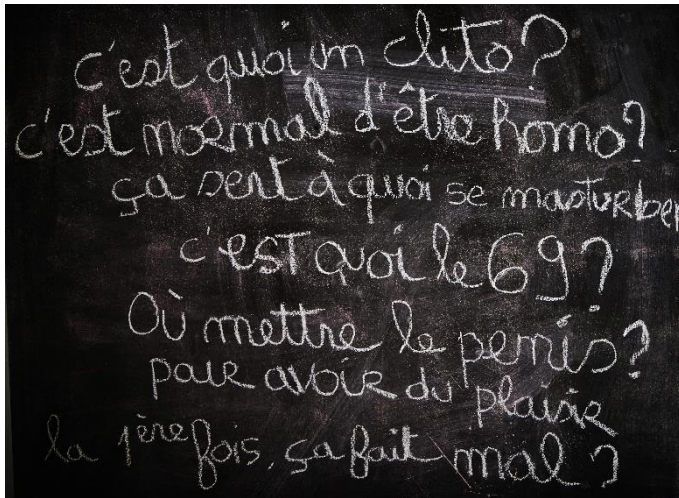 c'est quoi un clito?
c'est normal d'être homo?
ça sert à quoi se masturber
c'est quoi le 69?
Où mettre le penis?
pour avoir du plaisir
la 1ère fois, ça fait mal?